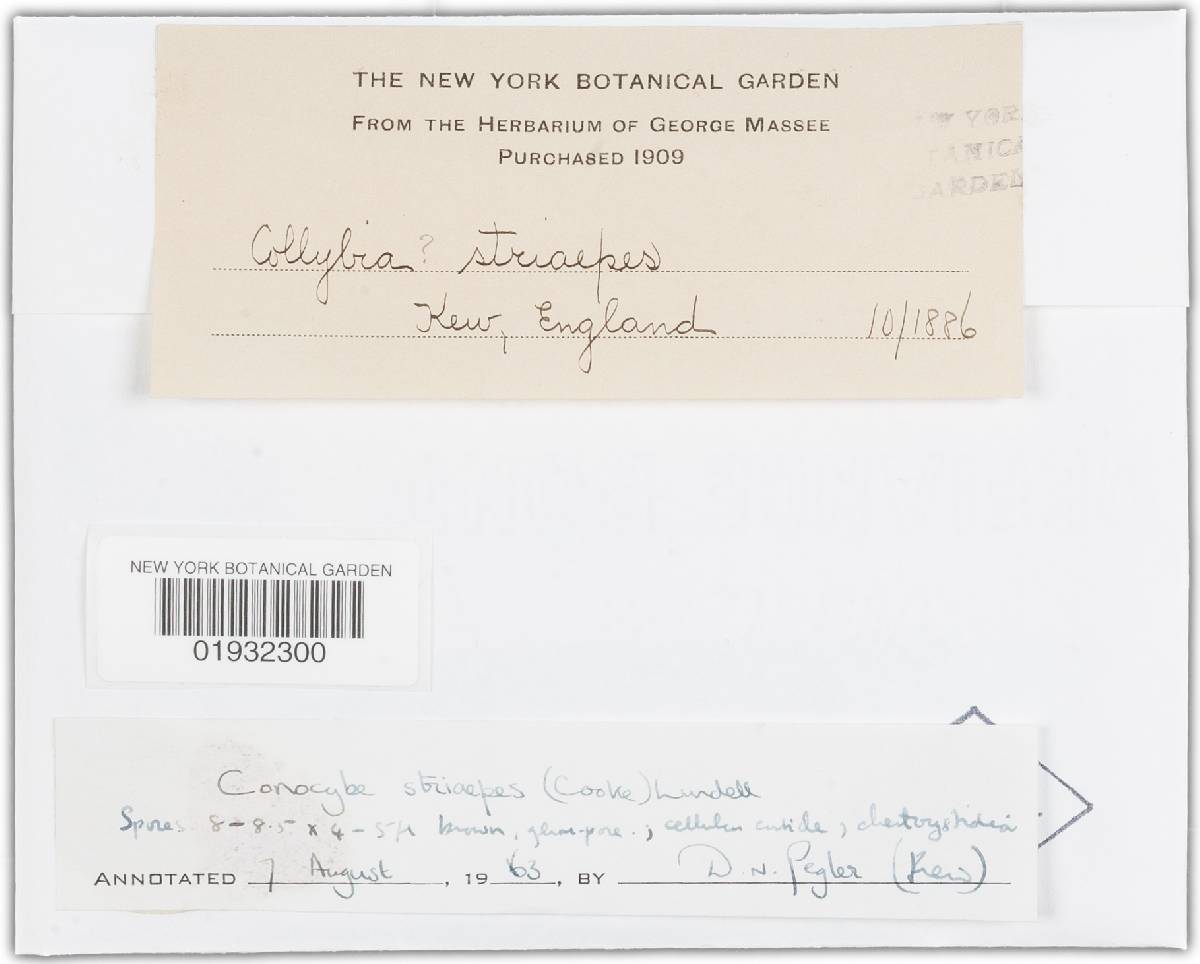 THE NEW YORK BOTANICAL GARDEN
FROM THE HERBARIUM OF GEORGE MASSEE
PURCHASED 1909
YORK
BOTANICAL
GARDEN
Collybia? striaepes
Kew, England 10/1886
NEW YORK BOTANICAL GARDEN
01932300
Conocybe striaepes (Cooke) Lundell
Spores 8-8.5 x 4-5µ brown, germ-pore.; cellular cuticle; cheilocystidia
ANNOTATED 7 August, 1963, BY D. N. Pegler (Kew)